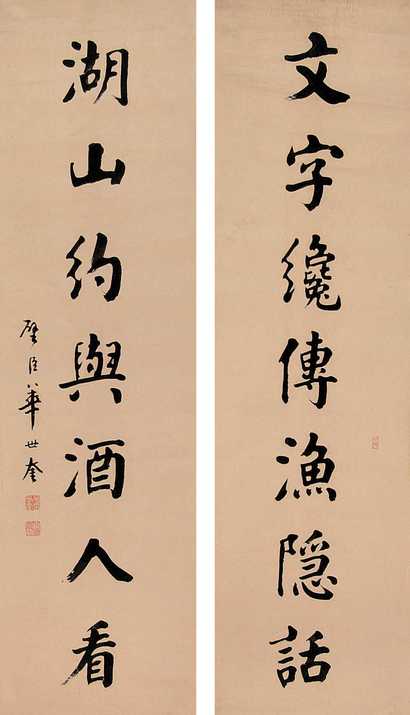 文字纔傳漁隱話
湖山約與酒人看
璧臣華世奎